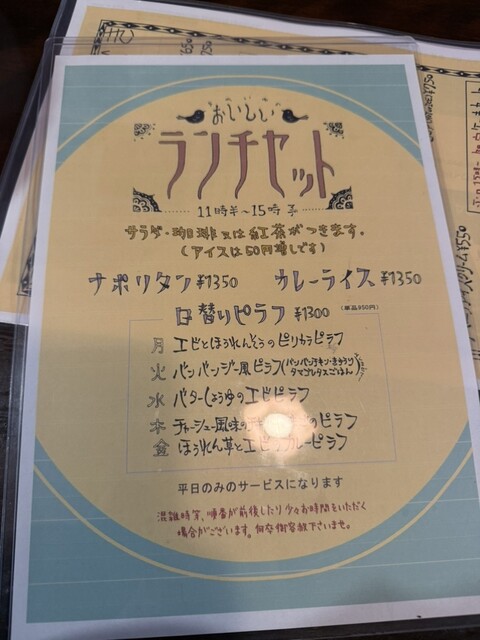 おいしい
ランチセット
11時半〜15時
サラダ・珈琲又は紅茶がつきます。
(アイスは50円増しです)
ナポリタン ¥1350 カレーライス ¥1350
日替りピラフ ¥1300 (単品950円)
月 エビとほうれんそうのピリカラピラフ
火 バンバンジー風ピラフ(バンバンチキン・きゅうり タマゴレタスごはん)
水 バターしょうゆのエビピラフ
木 チャーシュー風味の のピラフ
金 ほうれん草とエビ カレーピラフ
平日のみのサービスになります
混雑時等、順番が前後したり少々お時間をいただく
場合がございます。何卒御容赦下さいませ。
¥550